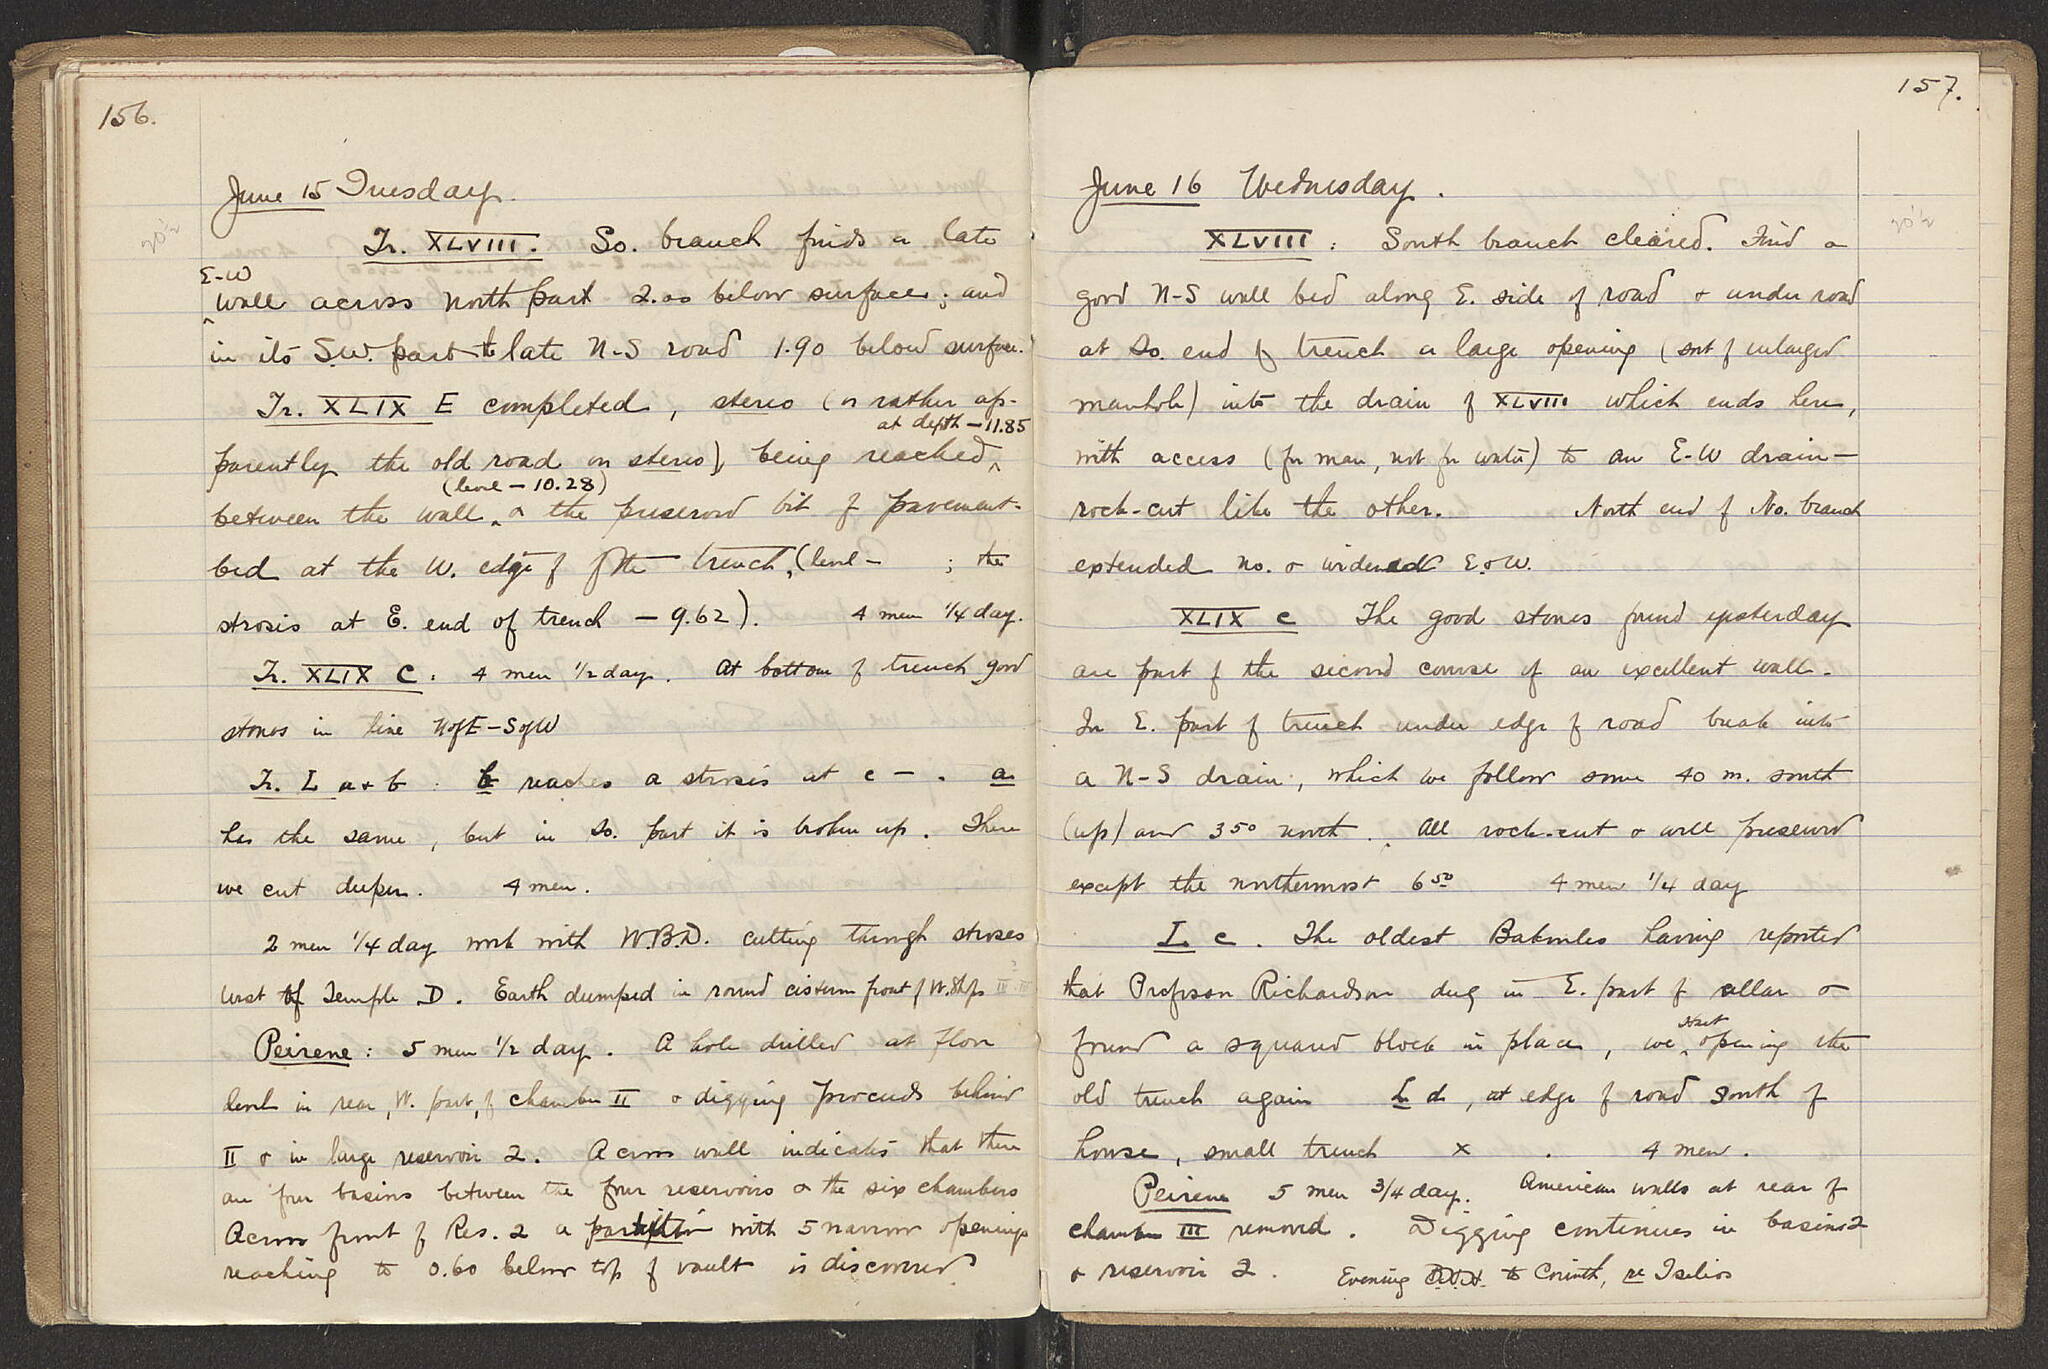 156.
June 15 Tuesday.
Tr. XLVIII. So. branch finds a late
E-W
wall across north part 2.00 below surface; and
in its S.W. part a late N-S road 1.90 below surface.
Tr. XLIX E completed, stereo (or rather ap-
at depth - 11.85
parently the old road on stereo), being reached
(level - 10.28)
between the wall & the preserved bit of pavement-
bed at the W. edge of the trench, (level - ; the
strosis at E. end of trench - 9.62). 4 men 1/4 day.
Tr. XLIX C: 4 men 1/2 day. At bottom of trench good
stones in line NofE-SofW
Tr. L a & b: b reaches a strosis at c - . a
has the same, but in So. part it is broken up. There
we cut deeper. 4 men.
2 men 1/4 day work with W.B.D. cutting through stroses
west of Temple D. Earth dumped in round cistern front of W. Shops
Peirene: 5 men 1/2 day. A hole drilled at floor
level in rear, W. part, of chamber II & digging proceeds behind
II & in large reservoir 2. A cross wall indicates that there
are four basins between the four reservoirs & the six chambers
Across front of Res. 2 a partition with 5 narrow openings
reaching to 0.60 below top of vault is discovered
157.
June 16 Wednesday.
XLVIII: South branch cleared. Find a
good N-S wall bed along E. side of road & under road
at So. end of trench a large opening (sort of enlarged
manhole) into the drain of XLVIII which ends here,
with access (for man, not for water) to an E-W drain -
rock-cut like the other. North end of No. branch
extended No. & widened E. & W.
XLIX C The good stones found yesterday
are part of the second course of an excellent wall.
In E. part of trench under edge of road break into
a N-S drain, which we follow some 40 m. south
(up) and 3.50 north. All rock-cut & well preserved
except the northernmost 6.50 4 men 1/4 day
L c. The oldest having reported
that Professor Richardson dug in E. part of cellar &
found a squared block in place, we start opening the
old trench again L d, at edge of road South of
house, small trench x . 4 men.
Peirene 5 men 3/4 day. American walls at rear of
chamber III removed. Digging continues in basins 2
& reservoir 2. Evening to Corinth, re Tselios